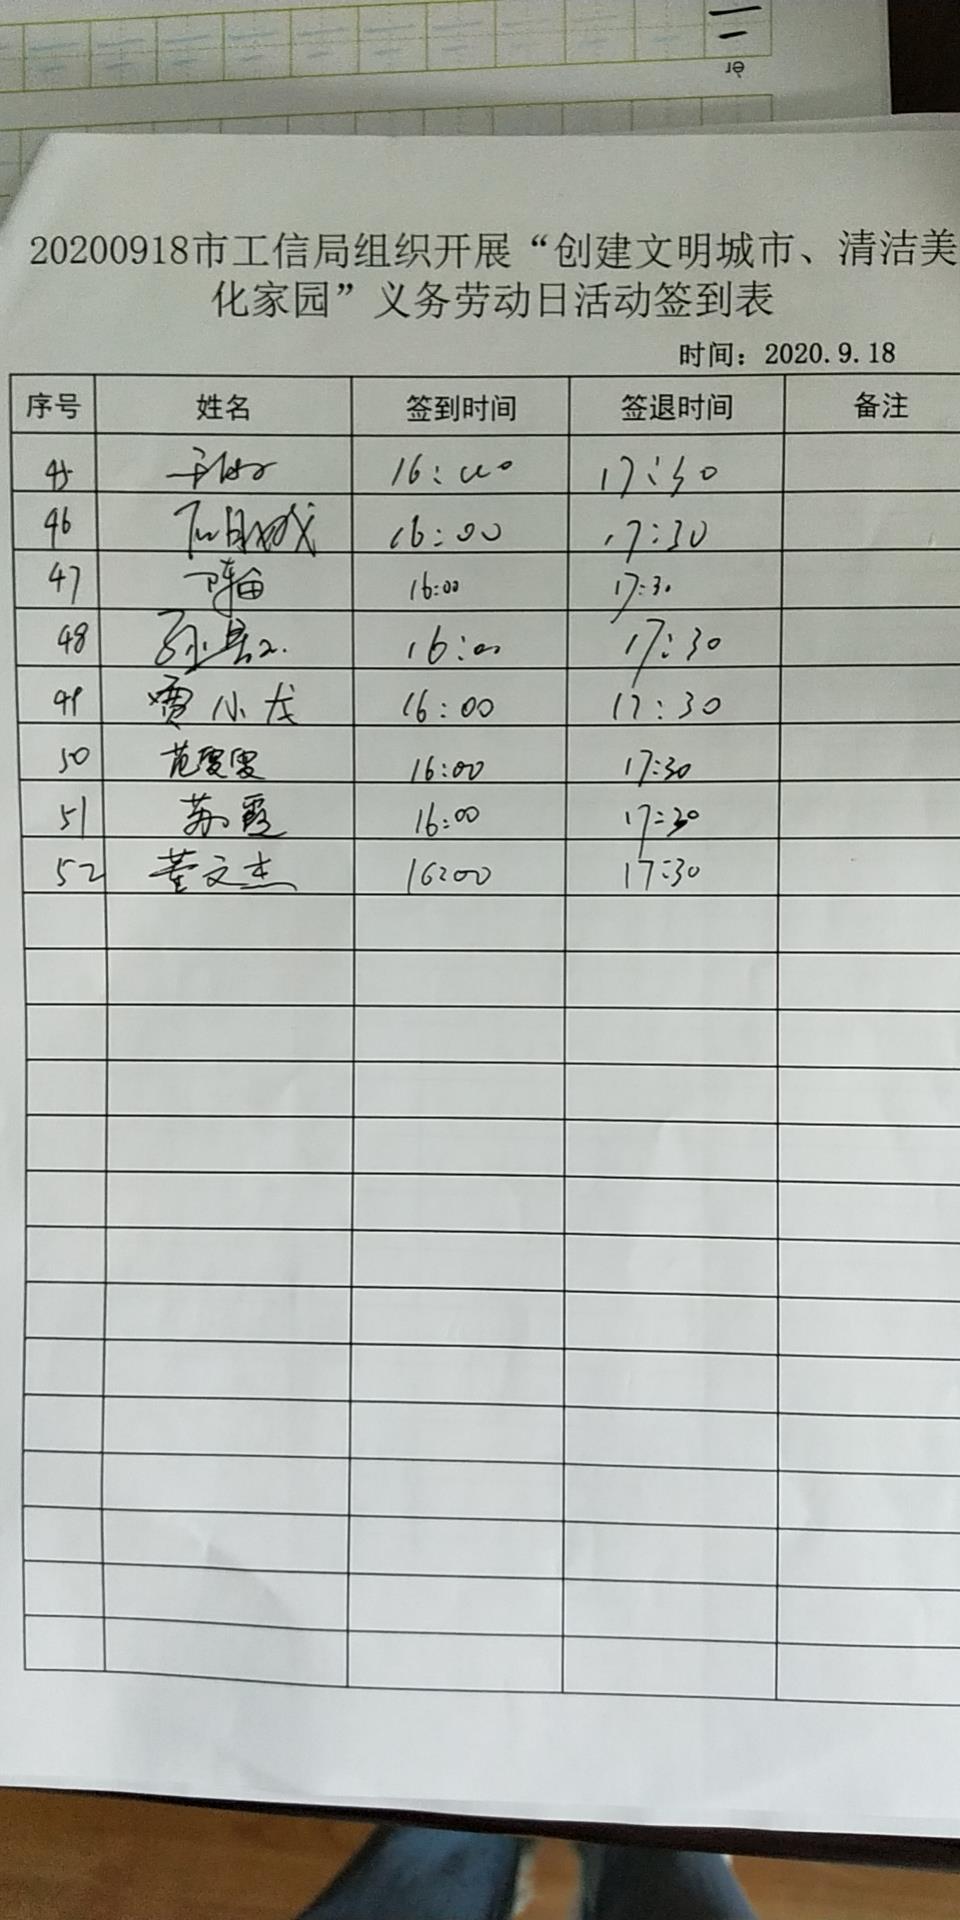 20200918市工信局组织开展“创建文明城市、清洁美
化家园”义务劳动日活动签到表
时间：2020.9.18
序号 姓名 签到时间 签退时间 备注
45 16:00 17:30
46 16:00 17:30
47 16:00 17:30
48 16:00 17:30
49 贾小龙 16:00 17:30
50 范雯雯 16:00 17:30
51 苏霞 16:00 17:30
52 董文杰 16:00 17:30